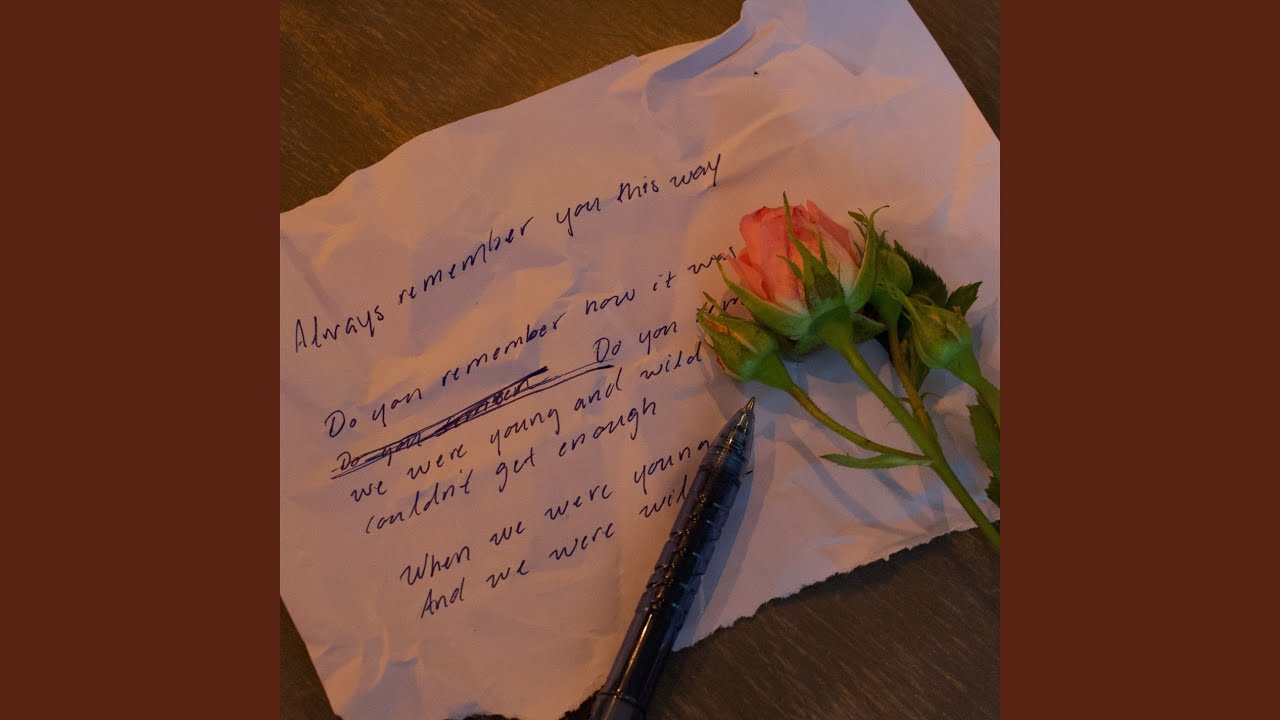 Always remember you this way
Do you remember how it was
Do you remember Do you
we were young and wild
couldn't get enough
When we were young
And we were